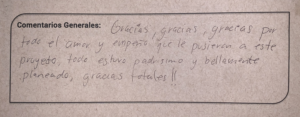 Comentarios Generales: Gracias, gracias, gracias, por
todo el amor y empeño que le pusieron a este
proyecto, todo estuvo padrisimo y bellamente
planeado, gracias totales!!